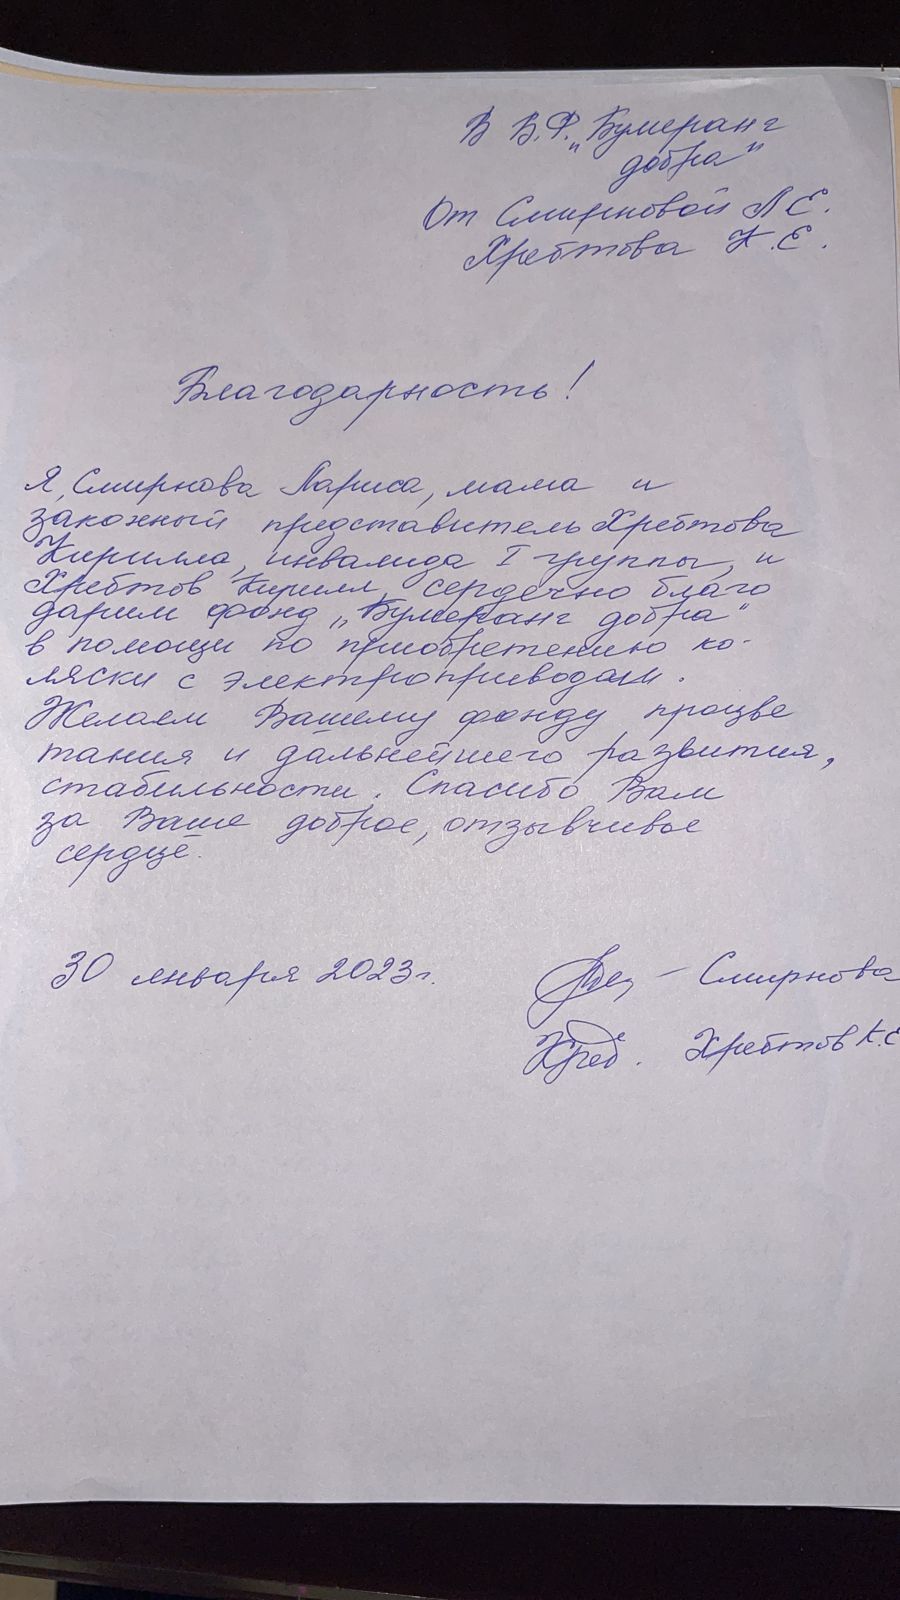 В Б.Ф. „Бумеранг
добра"
От Смирновой Л Е.
Хребтова К.Е.
Благодарность!
Я, Смирнова Лариса, мама и
законный представитель Хребтова
Кирилла, инвалида I группы, и
Хребтов Кирилл, сердечно благо
дарим фонд „Бумеранг добра"
в помощи по приобретению ко-
ляски с электроприводом.
Желаем Вашему фонду процве
тания и дальнейшего развития,
стабильности. Спасибо Вам
за Ваше доброе, отзывчивое
сердце.
30 января 2023г. – Смирнова
Хреб. Хребтов К.Е